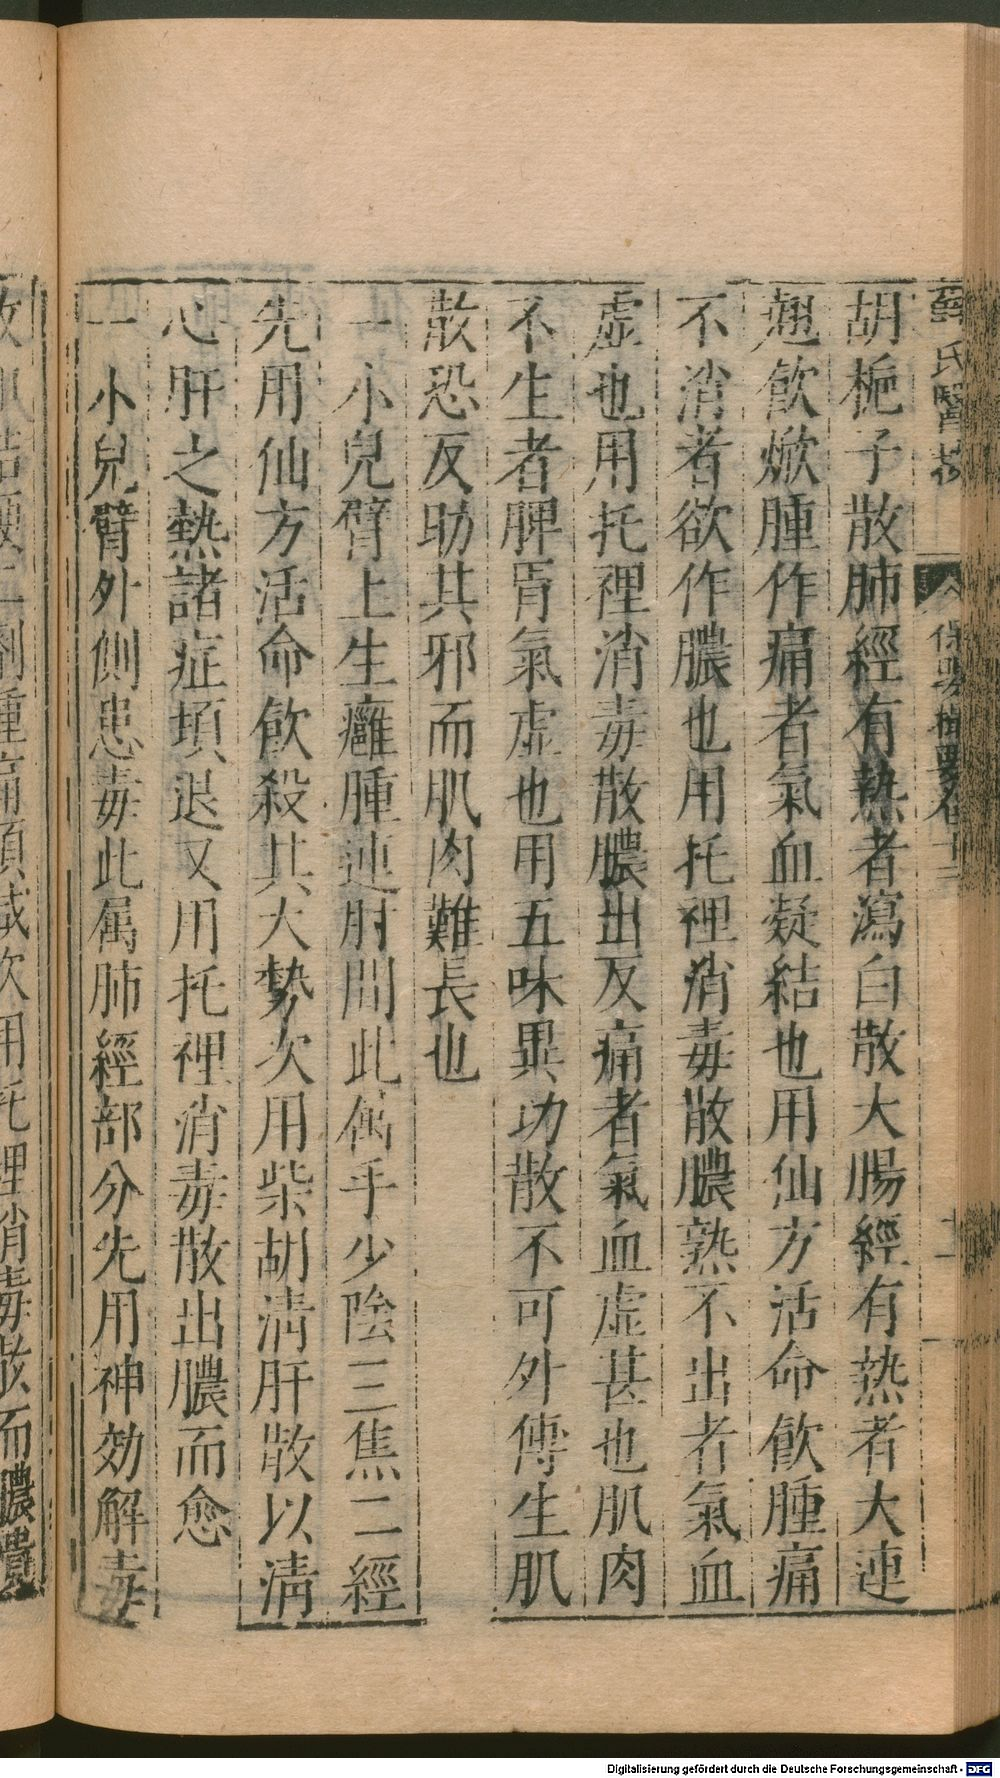 薛氏醫按 保嬰撮要卷十三 十一
胡梔子散肺經有熱者瀉白散大腸經有熱者大連
翹飲焮腫作痛者氣血凝結也用仙方活命飲腫痛
不消者欲作膿也用托裡消毒散膿熟不出者氣血
虛也用托裡消毒散膿出反痛者氣血虛甚也肌肉
不生者脾胃氣虛也用五味異功散不可外傅生肌
散恐反助其邪而肌肉難長也
一小兒臂上生癰腫連肘間此屬手少陰三焦二經
先用仙方活命飲殺其大勢次用柴胡清肝散以清
心肝之熱諸症頓退又用托裡消毒散出膿而愈
一小兒臂外側患毒此屬肺經部分先用神効解毒
腫痛頓減次用托裡消毒散而膿潰
Digitalisierung gefördert durch die Deutsche Forschungsgemeinschaft - DFG